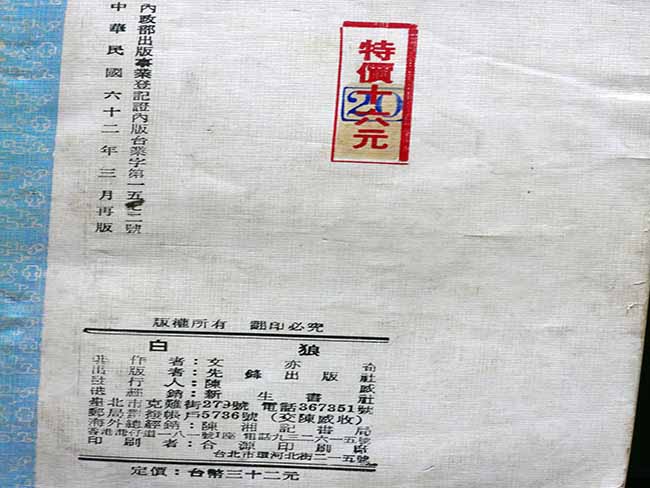 內政部出版事業登記證內版台業字第一五七二號
中華民國六十二年三月再版
特價十六元
20
版權所有 翻印必究
白狼
著作者：文亦奇
出版者：先鋒出版社
發行人：陳威
總經銷：新生書社
臺北市克難街279號 電話367351號
郵局劃撥帳戶5736號（交陳威收）
海外總經銷：陳湘記書局
香港港仔道一八一號1座 電話九三二六一五號
印刷者：合源印刷廠
台北市環河北街二一五號
定價：台幣三十二元